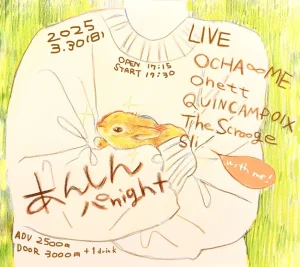 2025
3.30(日)
OPEN 17:15
START 17:30
LIVE
OCHA∞ME
Onett
QUINCAMPOIX
The Scrooge
Sli
with me!
あんしん
night
ADV 2500円
DOOR 3000円 +1 drink